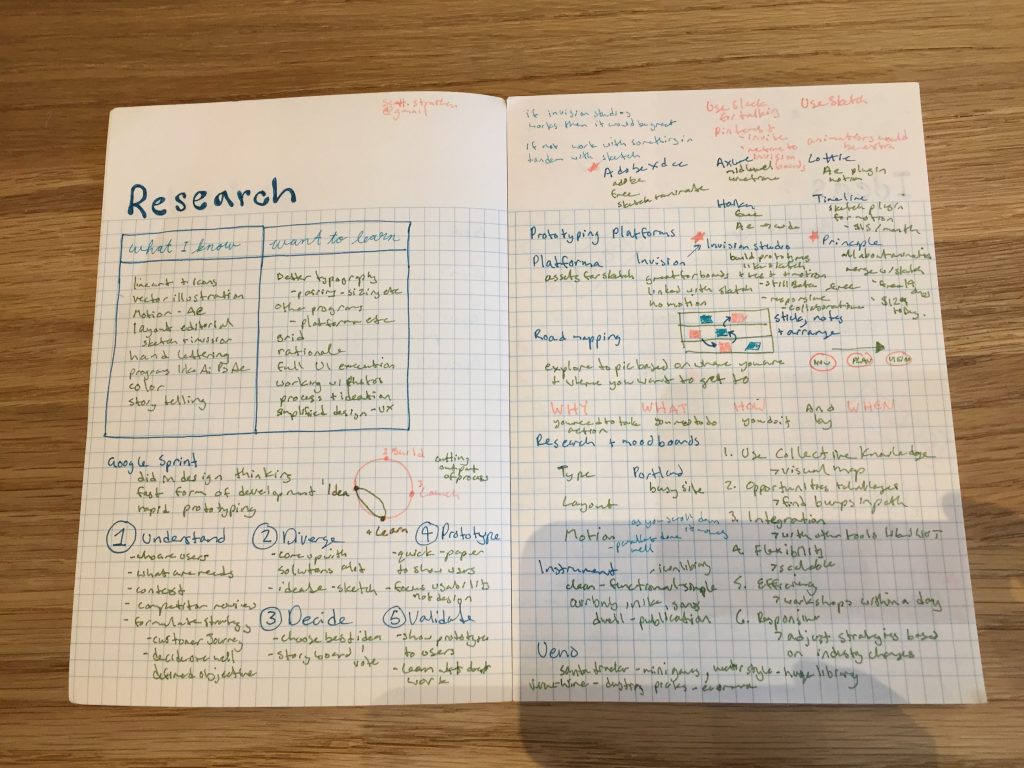 @gmail
Research
what I know
want to learn
lineart + icons
vector illustration
Motion - AE
layout editorial
sketch + invision
hand lettering
programs like Ai Ps Ae
color
story telling
Better typography
- pairing - sizing etc
other programs
- platforms etc
Grid
rationale
Full UI execution
working w/ photos
process + ideation
simplified design - UX
Google Sprint
did in design thinking
fast form of development
rapid prototyping
1 Idea
2 Build
3 Launch
4 Learn
cutting
output
of process
1 Understand
- who are users
- what are needs
- context
- competitor reviews
- formulate strategy
- customer journey
- decide one well
defined objective
2 Diverge
- come up with
solutions alot
- ideate - sketch
3 Decide
- choose best idea
- story board, vote
4 Prototype
- quick - paper
to show users
- focus usability
not design
5 Validate
- show prototype
to users
- Learn what dont
work
if invision studio
works then it would be great
if not work with something in
tandem with sketch
Use Slack
for talking
Use Sketch
Pinterest
- invite
me to
invision
boards
animations would
be extra
Adobe xd cc
adobe
free
sketch to animate
Axure
mid level
wireframe
Lottie
Ae plugin
motion
Haiku
free
Timeline
sketch plugin
for motion
- $15/month
Prototyping Platforms
Platforma
assets for sketch
Invision
great for boards
linked with sketch
no motion
Invision studio
build prototypes
like sketch
+ test + motion
- still Beta - free
- responsive
- collaborative
Principle
all about animation
merge w/ sketch
- $129
today.
Road mapping
sticky notes
+ arrange
explore topic based on where you are
+ where you want to get to
NOW
PLAN
VISION
WHY
you need to take
action
WHAT
you need to do
HOW
you do it
And
by
WHEN
Research + moodboards
Type
Portland
busy site
Layout
Motion
as you scroll down
it moves
- parallax done
well
- icon library
Instrument
clean - functional simple
airbnb, nike, sonos
dwell - publication
Ueno
santa tracker - mini games, vector style - huge library
1. Use Collective knowledge
> visual map
2. Opportunities + challenges
> find bumps in path
3. Integration
> with other tools like IOT
4. Flexibility
> scalable
5. Efficiency
> workshops within a day
6. Responsive
> adjust strategies based
on industry changes